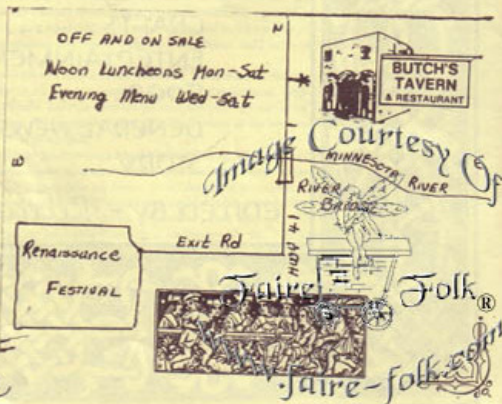 N
OFF AND ON SALE
Noon Luncheons Mon-Sat
Evening Menu Wed-Sat
BUTCH'S
TAVERN
& RESTAURANT
Image Courtesy Of
W
MINNESOTA RIVER
RIVER
BRIDGE
HWY 41
Exit Rd
Renaissance
FESTIVAL
Faire Folk®
www.faire-folk.com